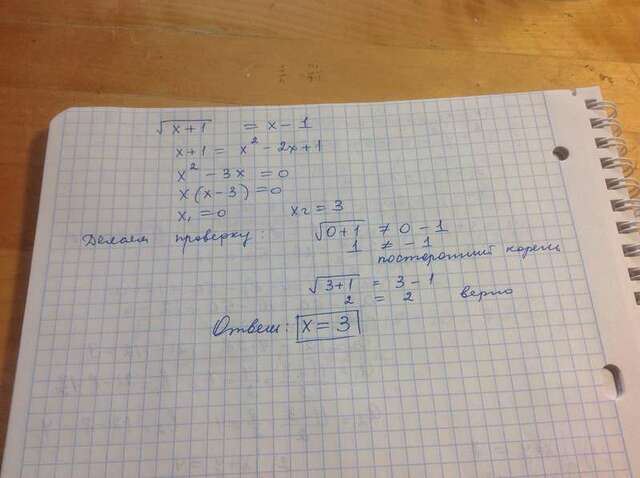 √(x+1) = x - 1
x+1 = x² - 2x+1
x² - 3x = 0
x(x-3) = 0
x₁ = 0 x₂ = 3
Делаем проверку: √(0+1) ≠ 0 - 1
1 ≠ -1
посторонний корень
√(3+1) = 3 - 1
2 = 2 верно
Ответ: x = 3